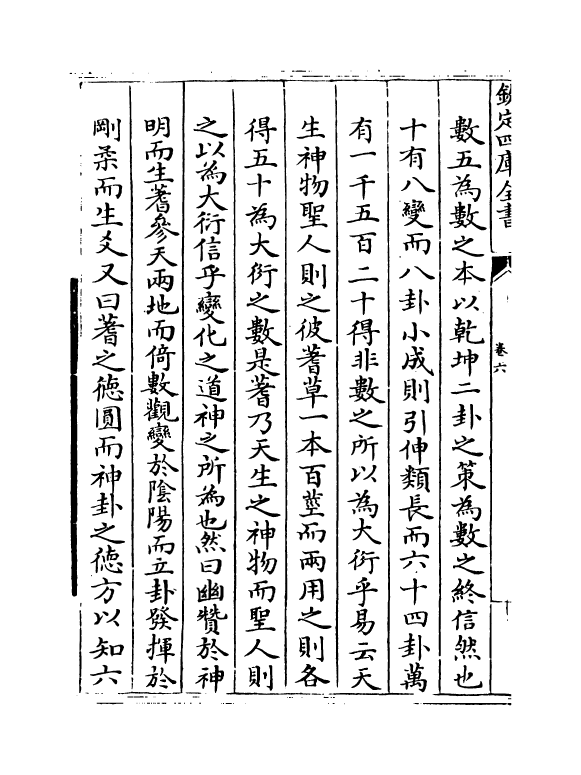 欽定四庫全書
卷六
數五為數之本以乾坤二卦之策為數之終信然也
十有八變而八卦小成則引伸類長而六十四卦萬
有一千五百二十得非數之所以為大衍乎易云天
生神物聖人則之彼蓍草一本百莖而兩用之則各
得五十為大衍之數是蓍乃天生之神物而聖人則
之以為大衍信乎變化之道神之所為也然曰幽贊於神
明而生蓍參天兩地而倚數觀變於陰陽而立卦發揮於
剛柔而生爻又曰蓍之徳圓而神卦之徳方以知六